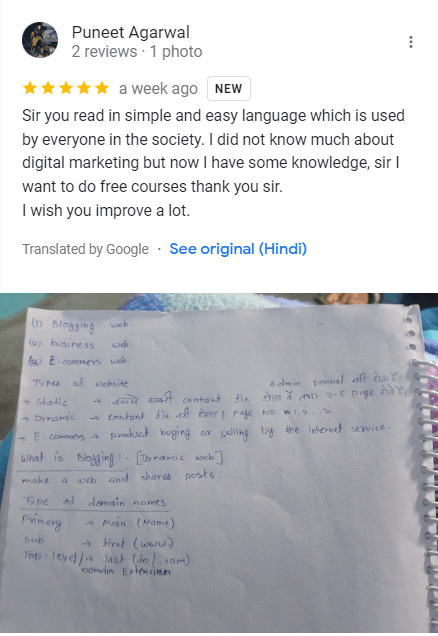 Puneet Agarwal
2 reviews · 1 photo
★★★★★ a week ago NEW
Sir you read in simple and easy language which is used
by everyone in the society. I did not know much about
digital marketing but now I have some knowledge, sir I
want to do free courses thank you sir.
I wish you improve a lot.
Translated by Google · See original (Hindi)
(1) Blogging web.
(2) business web.
(3) E-commers web.
Types of website
Admin pannel नही होता है।
→ Static → इसमे सभी contant fix होता है 3-5 page होते है।
→ Dynamic → contant fix नही होता। Page No 1, 2.. n
→ E-commers → product buying or selling by the Internet service.
What is Blogging :- [Dynamic web]
make a web and shares posts.
Type of domain names
Primary → Main (Name)
Sub → first (www)
Top-level → last (.in/.com)
Domain Extencion